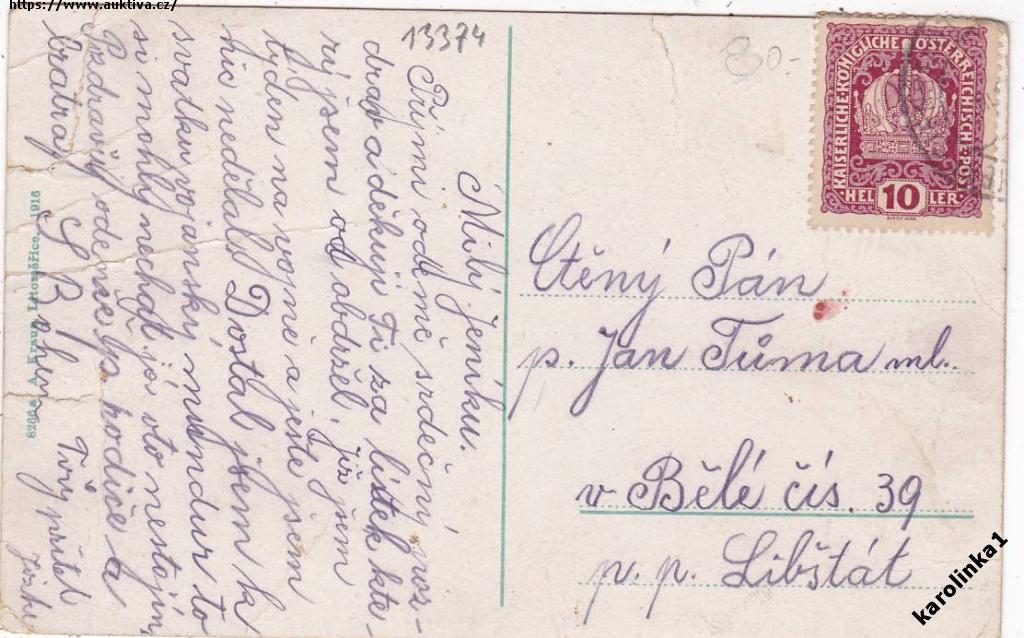 https://www.auktiva.cz/
13374
80.-
KAISERLICHE KÖNIGLICHE ÖSTERREICHISCHE POST
HELLER
10
Milý Jeníku.
Přijmi odemě srdečný poz-
drav a děkuji Ti za lístek kte-
rý jsem od obdržel. Již jsem
týden na vojně a ještě jsem
nic nedělal. Dostal jsem k
svátku vojanský mundur to
si mohly nechat já oto nestojím
Pozdravuj odemne tvs rodiče a
bratray
S Bohem
Tvůj přítel
Ctěný Pán
p. Jan Tůma ml.
v Bělé čís. 39
p. p. Libštát
8266a A. Kraus, Litoměřice, 1916
karolinka1